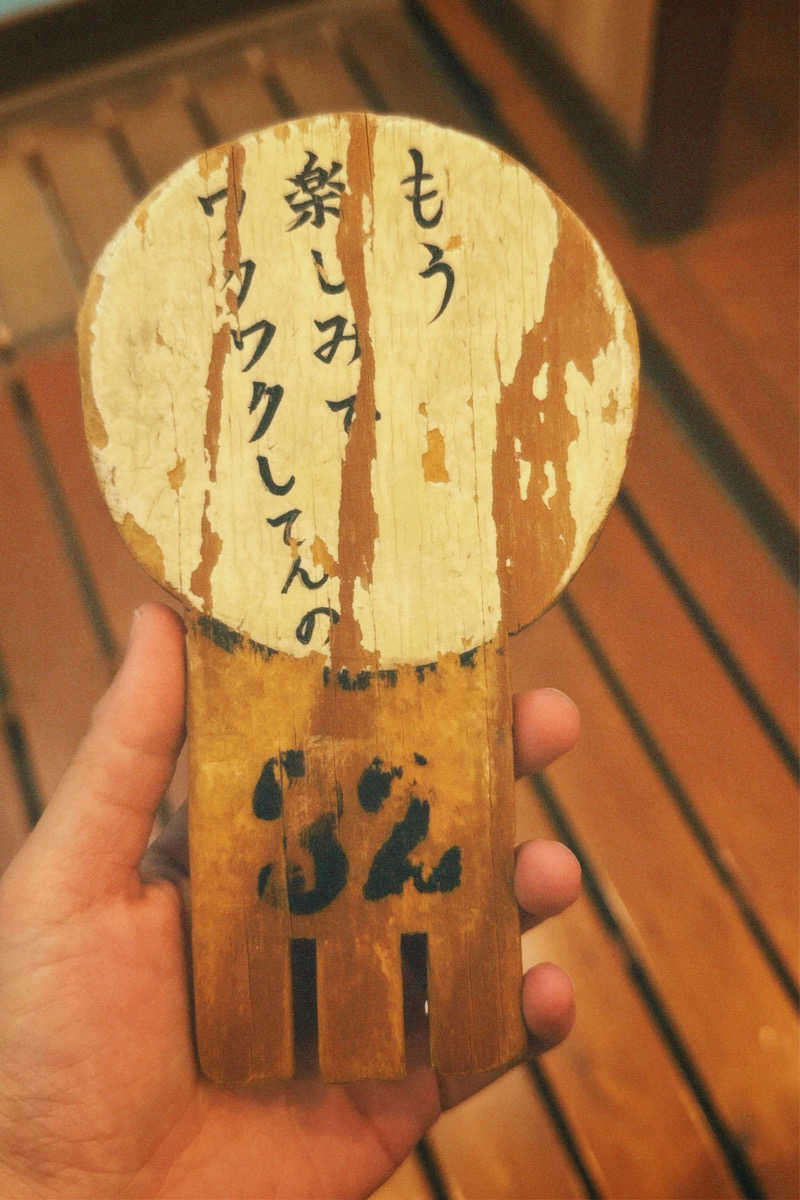 もう
楽しみで
ワクワクしてんの
32